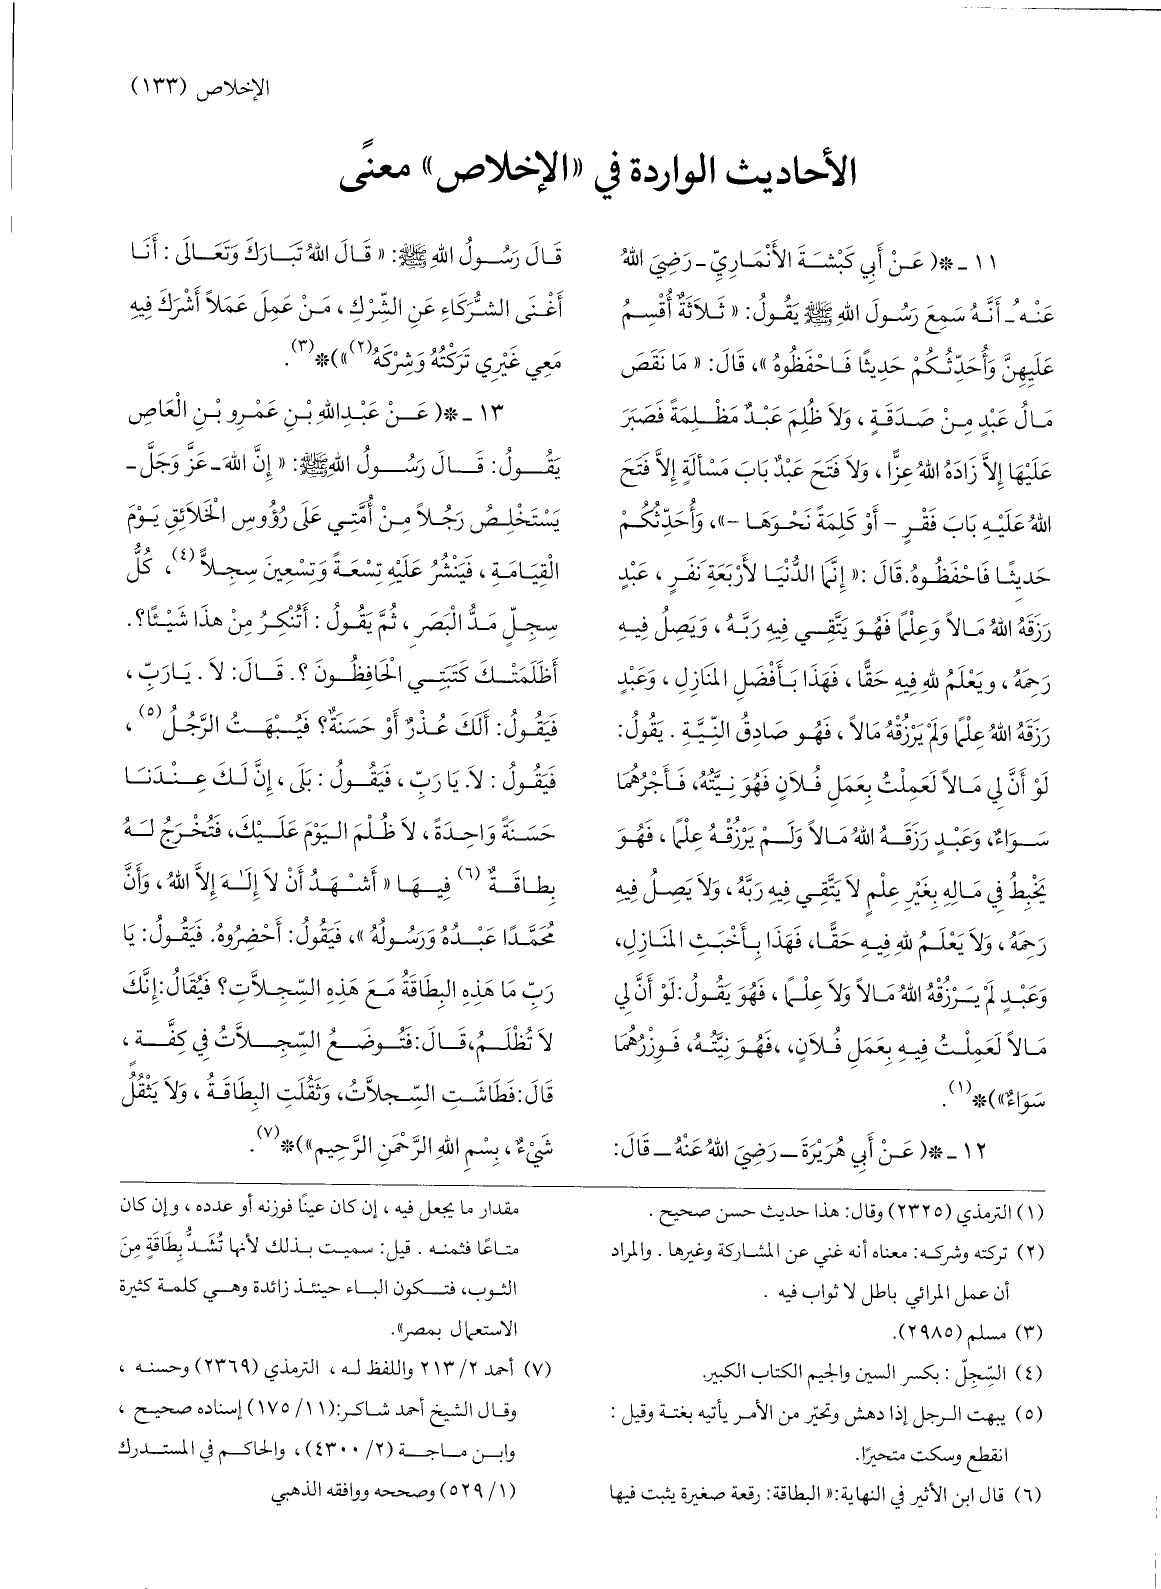 الإخلاص (١٣٣)
الأحاديث الواردة في «الإخلاص» معنًى
١١ -*( عَنْ أَبِي كَبْشَةَ الأَنْمَارِيِّ - رَضِيَ اللهُ
عَنْهُ - أَنَّهُ سَمِعَ رَسُولَ اللهِ ﷺ يَقُولُ: « ثَلَاثَةٌ أُقْسِمُ
عَلَيهِنَّ وَأُحَدِّثُكُمْ حَدِيثًا فَاحْفَظُوهُ »، قَالَ: « مَا نَقَصَ
مَالُ عَبْدٍ مِنْ صَدَقَةٍ ، وَلاَ ظُلِمَ عَبْدٌ مَظْلِمَةً فَصَبَرَ
عَلَيْهَا إِلاَّ زَادَهُ اللهُ عِزًّا ، وَلاَ فَتَحَ عَبْدٌ بَابَ مَسْأَلَةٍ إِلاَّ فَتَحَ
اللهُ عَلَيْهِ بَابَ فَقْرٍ - أَوْ كَلِمَةً نَحْوَهَا -»، وَأُحَدِّثُكُمْ
حَدِيثًا فَاحْفَظُوهُ. قَالَ :« إِنَّمَا الدُّنْيَا لأَرْبَعَةِ نَفَرٍ ، عَبْدٍ
رَزَقَهُ اللهُ مَالاً وَعِلْمًا فَهُوَ يَتَّقِي فِيهِ رَبَّهُ ، وَيَصِلُ فِيهِ
رَحِمَهُ ، ويَعْلَمُ لِلهِ فِيهِ حَقًّا ، فَهَذَا بِأَفْضَلِ المَنَازِلِ ، وَعَبْدٍ
رَزَقَهُ اللهُ عِلْمًا وَلَمْ يَرْزُقْهُ مَالاً ، فَهُو صَادِقُ النِّيَّةِ . يَقُولُ:
لَوْ أَنَّ لِي مَالاً لَعَمِلْتُ بِعَمَلِ فُلاَنٍ فَهُوَ نِيَّتُهُ، فَأَجْرُهُمَا
سَوَاءٌ، وَعَبْدٍ رَزَقَهُ اللهُ مَالاً وَلَمْ يَرْزُقْهُ عِلْمًا ، فَهُوَ
يَخْبِطُ فِي مَالِهِ بِغَيْرِ عِلْمٍ لاَ يَتَّقِي فِيهِ رَبَّهُ ، وَلاَ يَصِلُ فِيهِ
رَحِمَهُ ، وَلاَ يَعْلَمُ لِلهِ فِيهِ حَقًّا، فَهَذَا بِأَخْبَثِ المَنَازِلِ،
وَعَبْدٍ لَمْ يَرْزُقْهُ اللهُ مَالاً وَلاَ عِلْمًا ، فَهُوَ يَقُولُ: لَوْ أَنَّ لِي
مَالاً لَعَمِلْتُ فِيهِ بِعَمَلِ فُلاَنٍ، ،فَهُوَ نِيَّتُهُ، فَوِزْرُهُمَا
سَوَاءٌ»)*(١).
١٢ -*( عَنْ أَبِي هُرَيْرَةَ - رَضِيَ اللهُ عَنْهُ - قَالَ:
قَالَ رَسُولُ اللهِ ﷺ: « قَالَ اللهُ تَبَارَكَ وَتَعَالَى : أَنَا
أَغْنَى الشُّرَكَاءِ عَنِ الشِّرْكِ ، مَنْ عَمِلَ عَمَلاً أَشْرَكَ فِيهِ
مَعِي غَيْرِي تَرَكْتُهُ وَشِرْكَهُ(٢)»)*(٣).
١٣ -*( عَنْ عَبْدِاللهِ بْنِ عَمْرِو بْنِ الْعَاصِ
يَقُولُ: قَالَ رَسُولُ اللهِ ﷺ: « إِنَّ اللهَ - عَزَّ وَجَلَّ -
يَسْتَخْلِصُ رَجُلاً مِنْ أُمَّتِي عَلَى رُؤُوسِ الْخَلَائِقِ يَوْمَ
الْقِيَامَةِ ، فَيَنْشُرُ عَلَيْهِ تِسْعَةً وَتِسْعِينَ سِجِلاًّ(٤)، كُلُّ
سِجِلٍّ مَدُّ الْبَصَرِ ، ثُمَّ يَقُولُ : أَتُنْكِرُ مِنْ هَذَا شَيْئًا؟.
أَظَلَمَتْكَ كَتَبَتِي الْحَافِظُونَ ؟. قَالَ: لاَ . يَارَبِّ ،
فَيَقُولُ: أَلَكَ عُذْرٌ أَوْ حَسَنَةٌ؟ فَيُبْهَتُ الرَّجُلُ(٥) ،
فَيَقُولُ : لاَ. يَا رَبِّ ، فَيَقُولُ : بَلَى ، إِنَّ لَكَ عِنْدَنَا
حَسَنَةً وَاحِدَةً ، لاَ ظُلْمَ اليَوْمَ عَلَيْكَ، فَتُخْرَجُ لَهُ
بِطَاقَةٌ (٦) فِيهَا « أَشْهَدُ أَنْ لاَ إِلَهَ إِلاَّ اللهُ ، وَأَنَّ
مُحَمَّدًا عَبْدُهُ وَرَسُولُهُ »، فَيَقُولُ: أَحْضِرُوهُ. فَيَقُولُ: يَا
رَبِّ مَا هَذِهِ البِطَاقَةُ مَعَ هَذِهِ السِّجِلاَّتِ؟ فَيُقَالُ: إِنَّكَ
لاَ تُظْلَمُ، قَالَ: فَتُوضَعُ السِّجِلاَّتُ فِي كِفَّةٍ ،
قَالَ: فَطَاشَتِ السِّجِلاَّتُ، وَثَقُلَتِ البِطَاقَةُ ، وَلاَ يَثْقُلُ
شَيْءٌ ، بِسْمِ اللهِ الرَّحْمَنِ الرَّحِيمِ»)*(٧).
(١) الترمذي (٢٣٢٥) وقال: هذا حديث حسن صحيح .
(٢) تركته وشركه: معناه أنه غني عن المشاركة وغيرها . والمراد
أن عمل المرائي باطل لا ثواب فيه .
(٣) مسلم (٢٩٨٥).
(٤) السِّجِلّ : بكسر السين والجيم الكتاب الكبير.
(٥) يبهت الرجل إذا دهش وتحيّر من الأمر يأتيه بغتة وقيل :
انقطع وسكت متحيرًا.
(٦) قال ابن الأثير في النهاية:« البطاقة: رقعة صغيرة يثبت فيها
مقدار ما يجعل فيه ، إن كان عينًا فوزنه أو عدده ، وإن كان
متاعًا فثمنه . قيل: سميت بذلك لأنها تُشَدُّ بِطَاقَةٍ مِنَ
الثوب، فتكون الباء حينئذ زائدة وهي كلمة كثيرة
الاستعمال بمصر».
(٧) أحمد ٢/ ٢١٣ واللفظ له ، الترمذي (٢٣٦٩) وحسنه ،
وقال الشيخ أحمد شاكر:(١١/ ١٧٥) إسناده صحيح ،
وابن ماجة (٢/ ٤٣٠٠)، والحاكم في المستدرك
(١/ ٥٢٩) وصححه ووافقه الذهبي